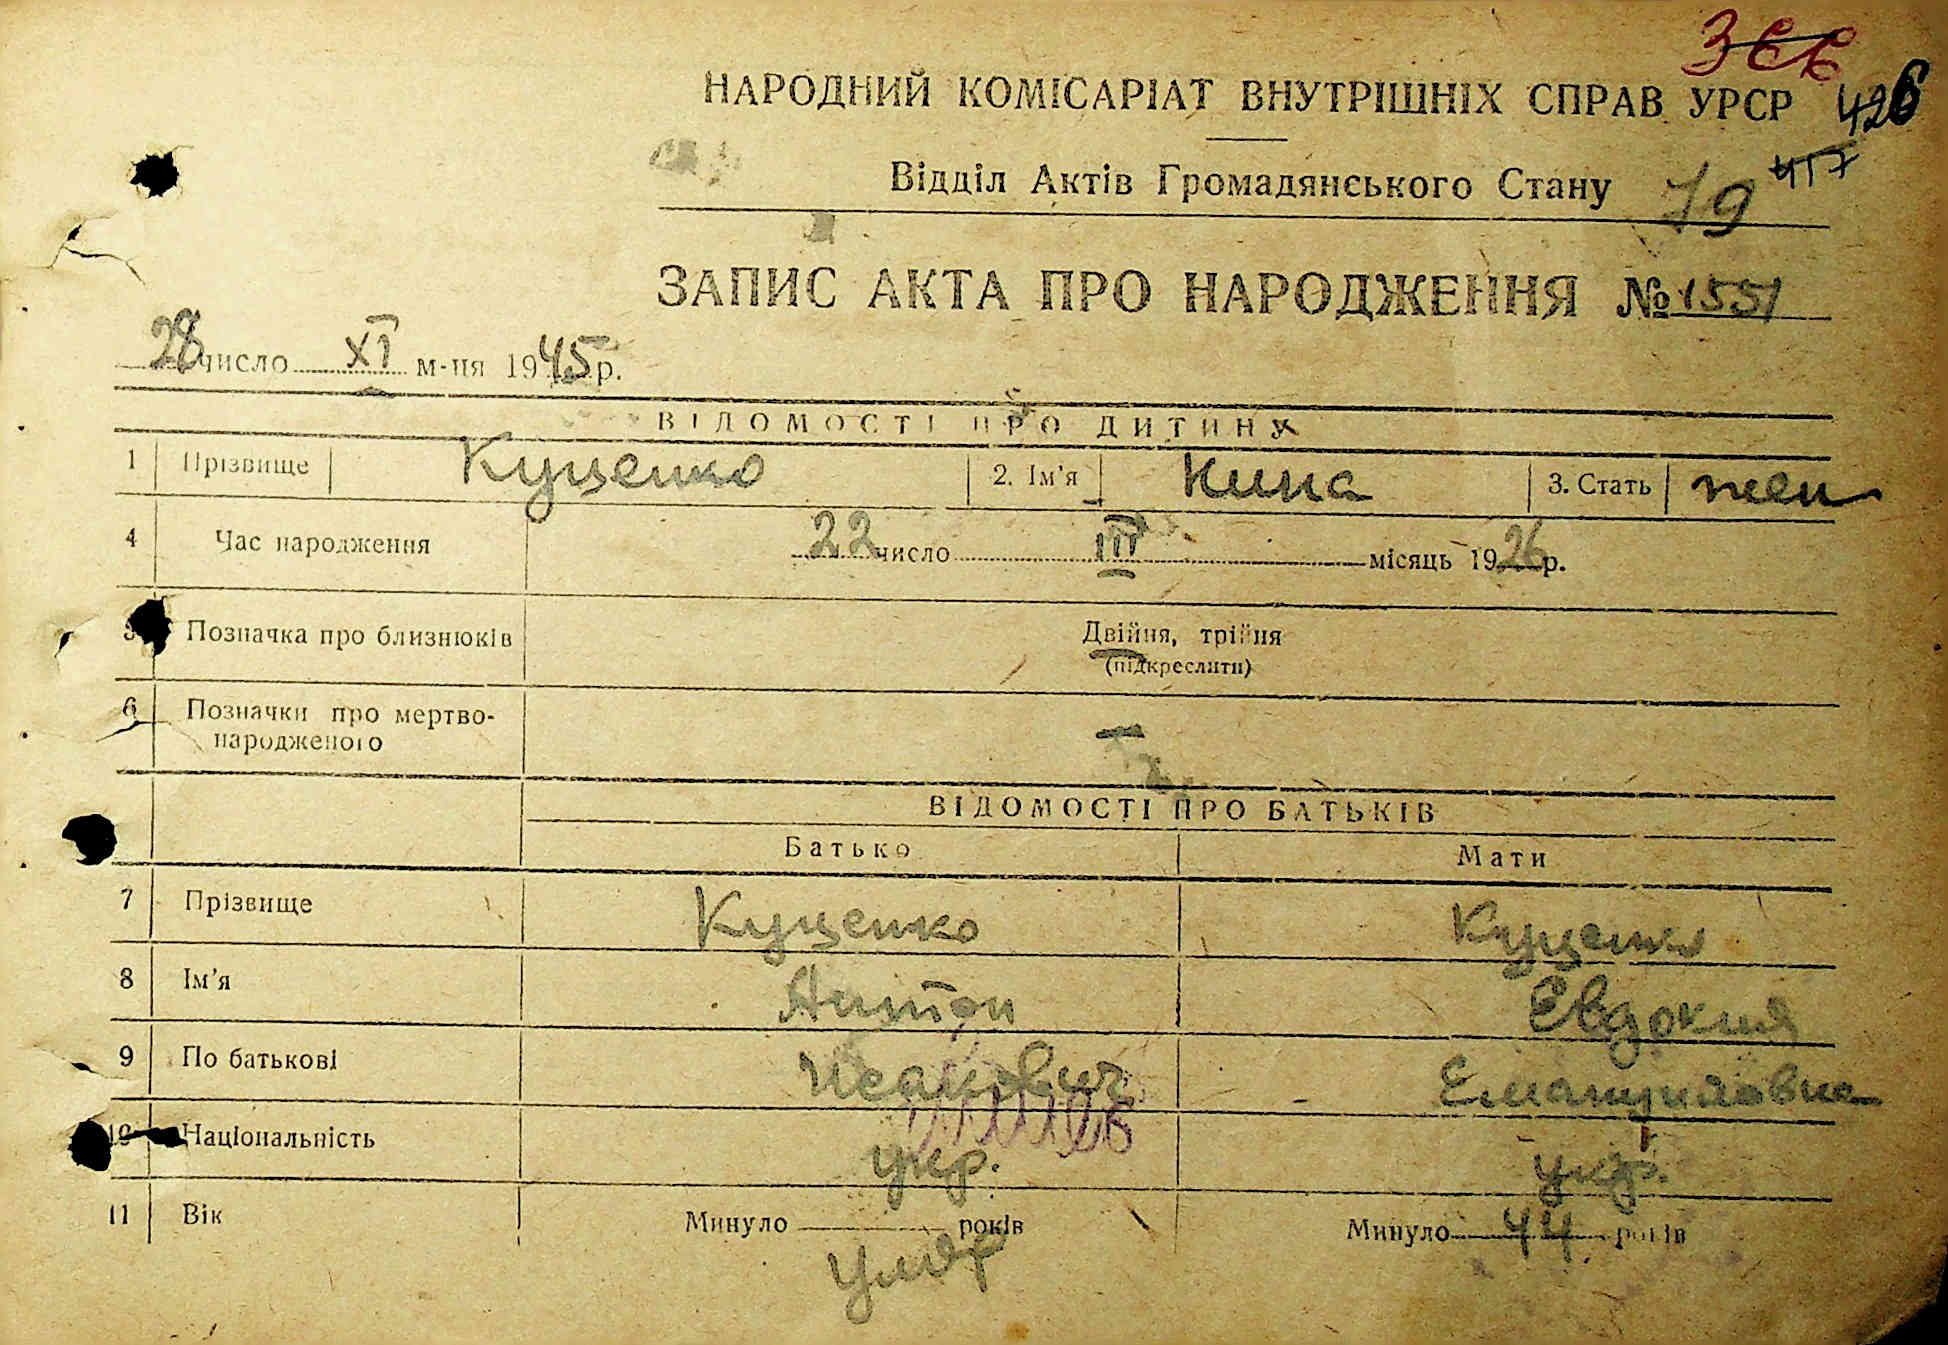 НАРОДНИЙ КОМІСАРІАТ ВНУТРІШНІХ СПРАВ УРСР 426
Відділ Актів Громадянського Стану 79 417
ЗАПИС АКТА ПРО НАРОДЖЕННЯ № 1551
28 число XI м-ця 1945 р.
ВІДОМОСТІ ПРО ДИТИНУ
1 Прізвище Куценко 2. Ім'я Нина 3. Стать жен
4 Час народження 22 число III місяць 1926 р.
5 Позначка про близнюків Двійня, трійня
(підкреслити)
6 Позначки про мертво-
народженого —
ВІДОМОСТІ ПРО БАТЬКІВ
Батько Мати
7 Прізвище Куценко Куценко
8 Ім'я Антон Евдокия
9 По батькові Исакович Емануиловна
10 Національність укр. укр.
11 Вік Минуло років Минуло 44 років
умер